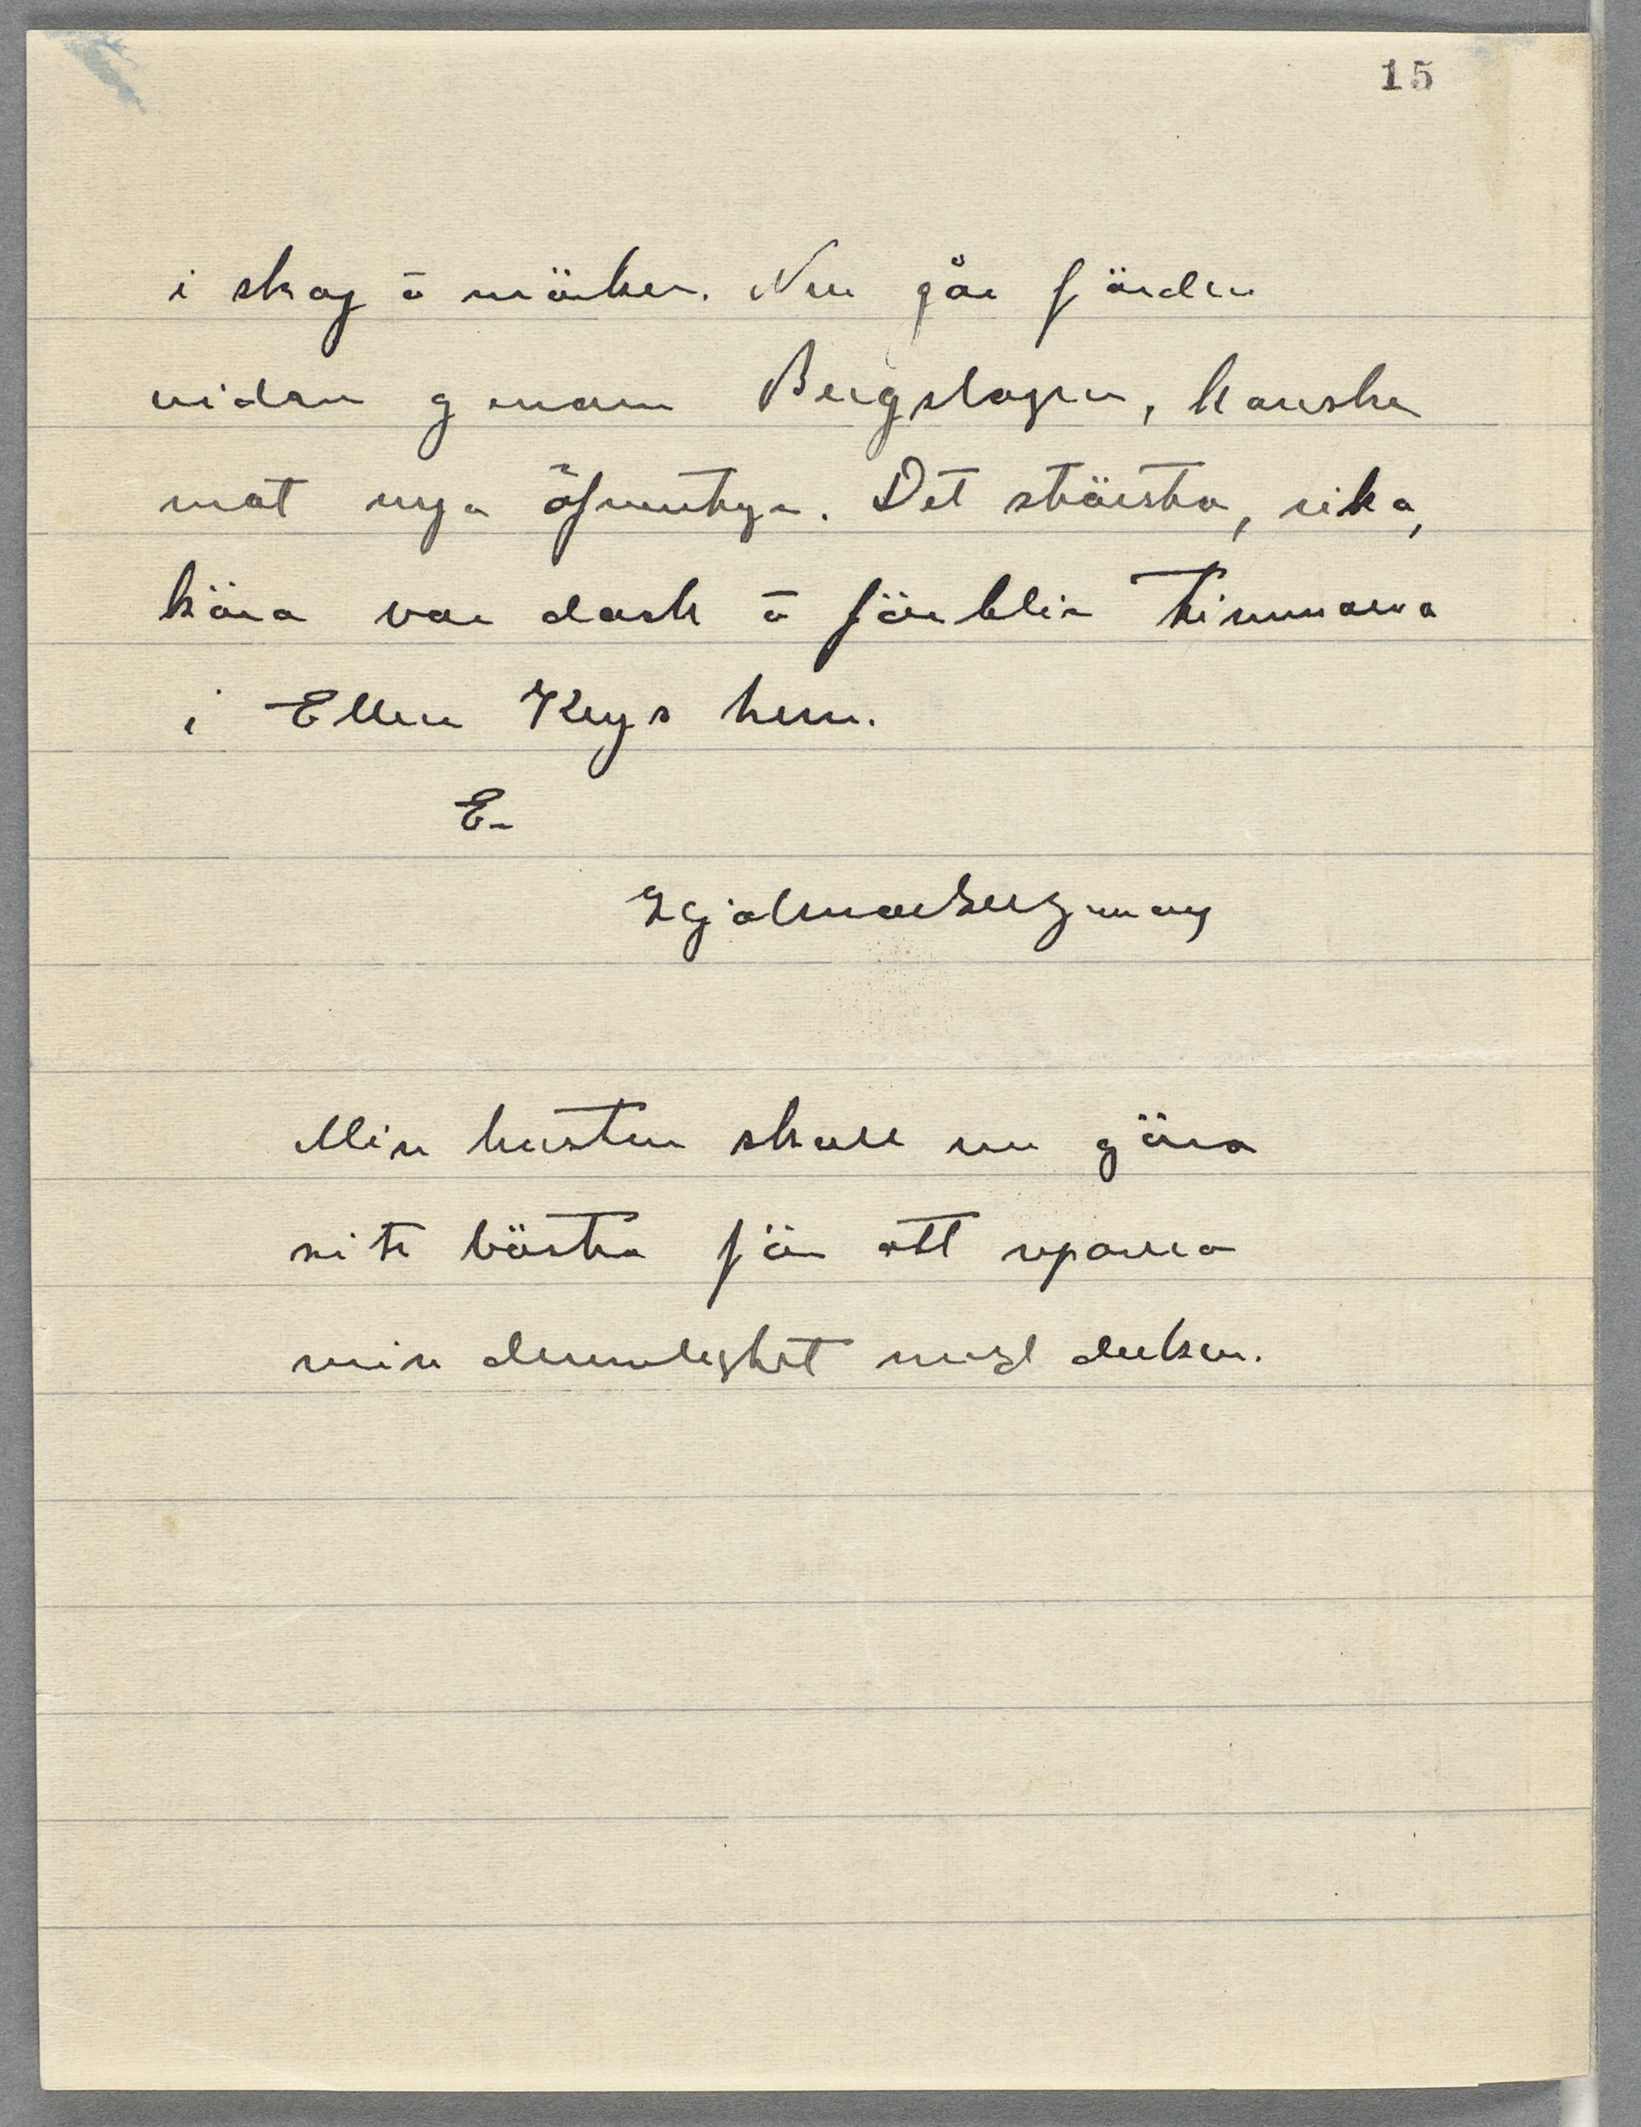 15
i skog å mörker. Nu går färden
vidare genom Bergslagen, kanske
mot nya äfventyr. Det största, rika,
kära var dock å förblir timmarna
i Ellen Keys hem.
Er
Hjalmar Bergman
Min hustru skall nu göra
sitt bästa för att reparera
min dumhet med duken.